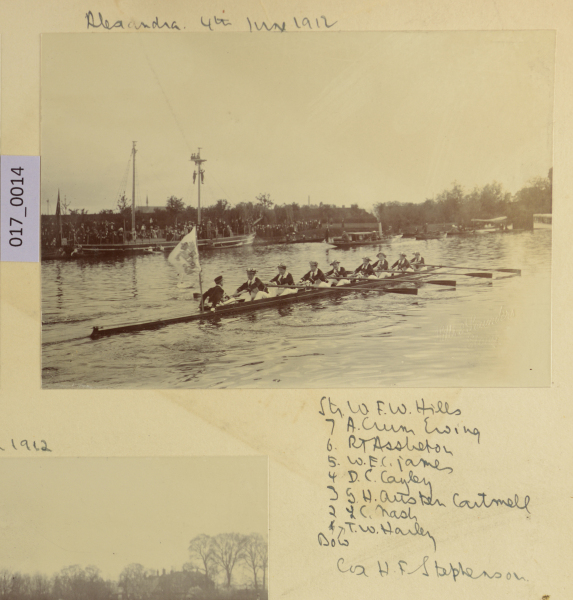 Alexandra. 4th June 1912
017_0014
Str W. F. W. Hills
7 A. Crum Ewing
6. R T Assheton
5. W. E. C. James
4 D. C. Cayley
3 G. H. Austen Cartmell
2 F. C. Nash
1 T. W. Harley
Bow
Cox H F Stephenson
1912